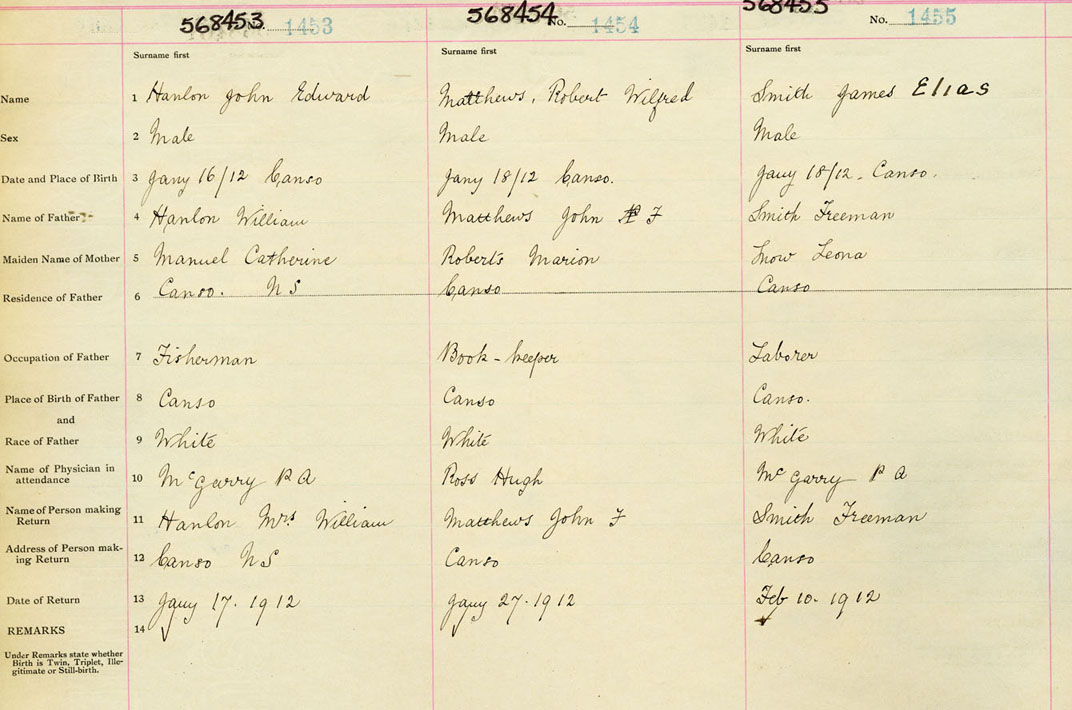 568453 No. 1453 568454 No. 1454 568455 No. 1455
Surname first Surname first Surname first
Name 1 Hanlon John Edward Matthews, Robert Wilfred Smith James Elias
Sex 2 Male Male Male
Date and Place of Birth 3 Jany 16/12 Canso Jany 18/12 Canso. Jany 18/12. Canso.
Name of Father 4 Hanlon William Matthews John F Smith Freeman
Maiden Name of Mother 5 Manuel Catherine Roberts Marion Snow Leona
Residence of Father 6 Canso. N S Canso Canso
Occupation of Father 7 Fisherman Book-keeper Laborer
Place of Birth of Father 8 Canso Canso Canso.
and
Race of Father 9 White White White
Name of Physician in
attendance 10 McGarry P A Ross Hugh McGarry P A
Name of Person making
Return 11 Hanlon Mrs William Matthews John F Smith Freeman
Address of Person mak-
ing Return 12 Canso N S Canso Canso
Date of Return 13 Jany 17. 1912 Jany 27. 1912 Feb 10. 1912
REMARKS 14
Under Remarks state whether
Birth is Twin, Triplet, Ille-
gitimate or Still-birth.